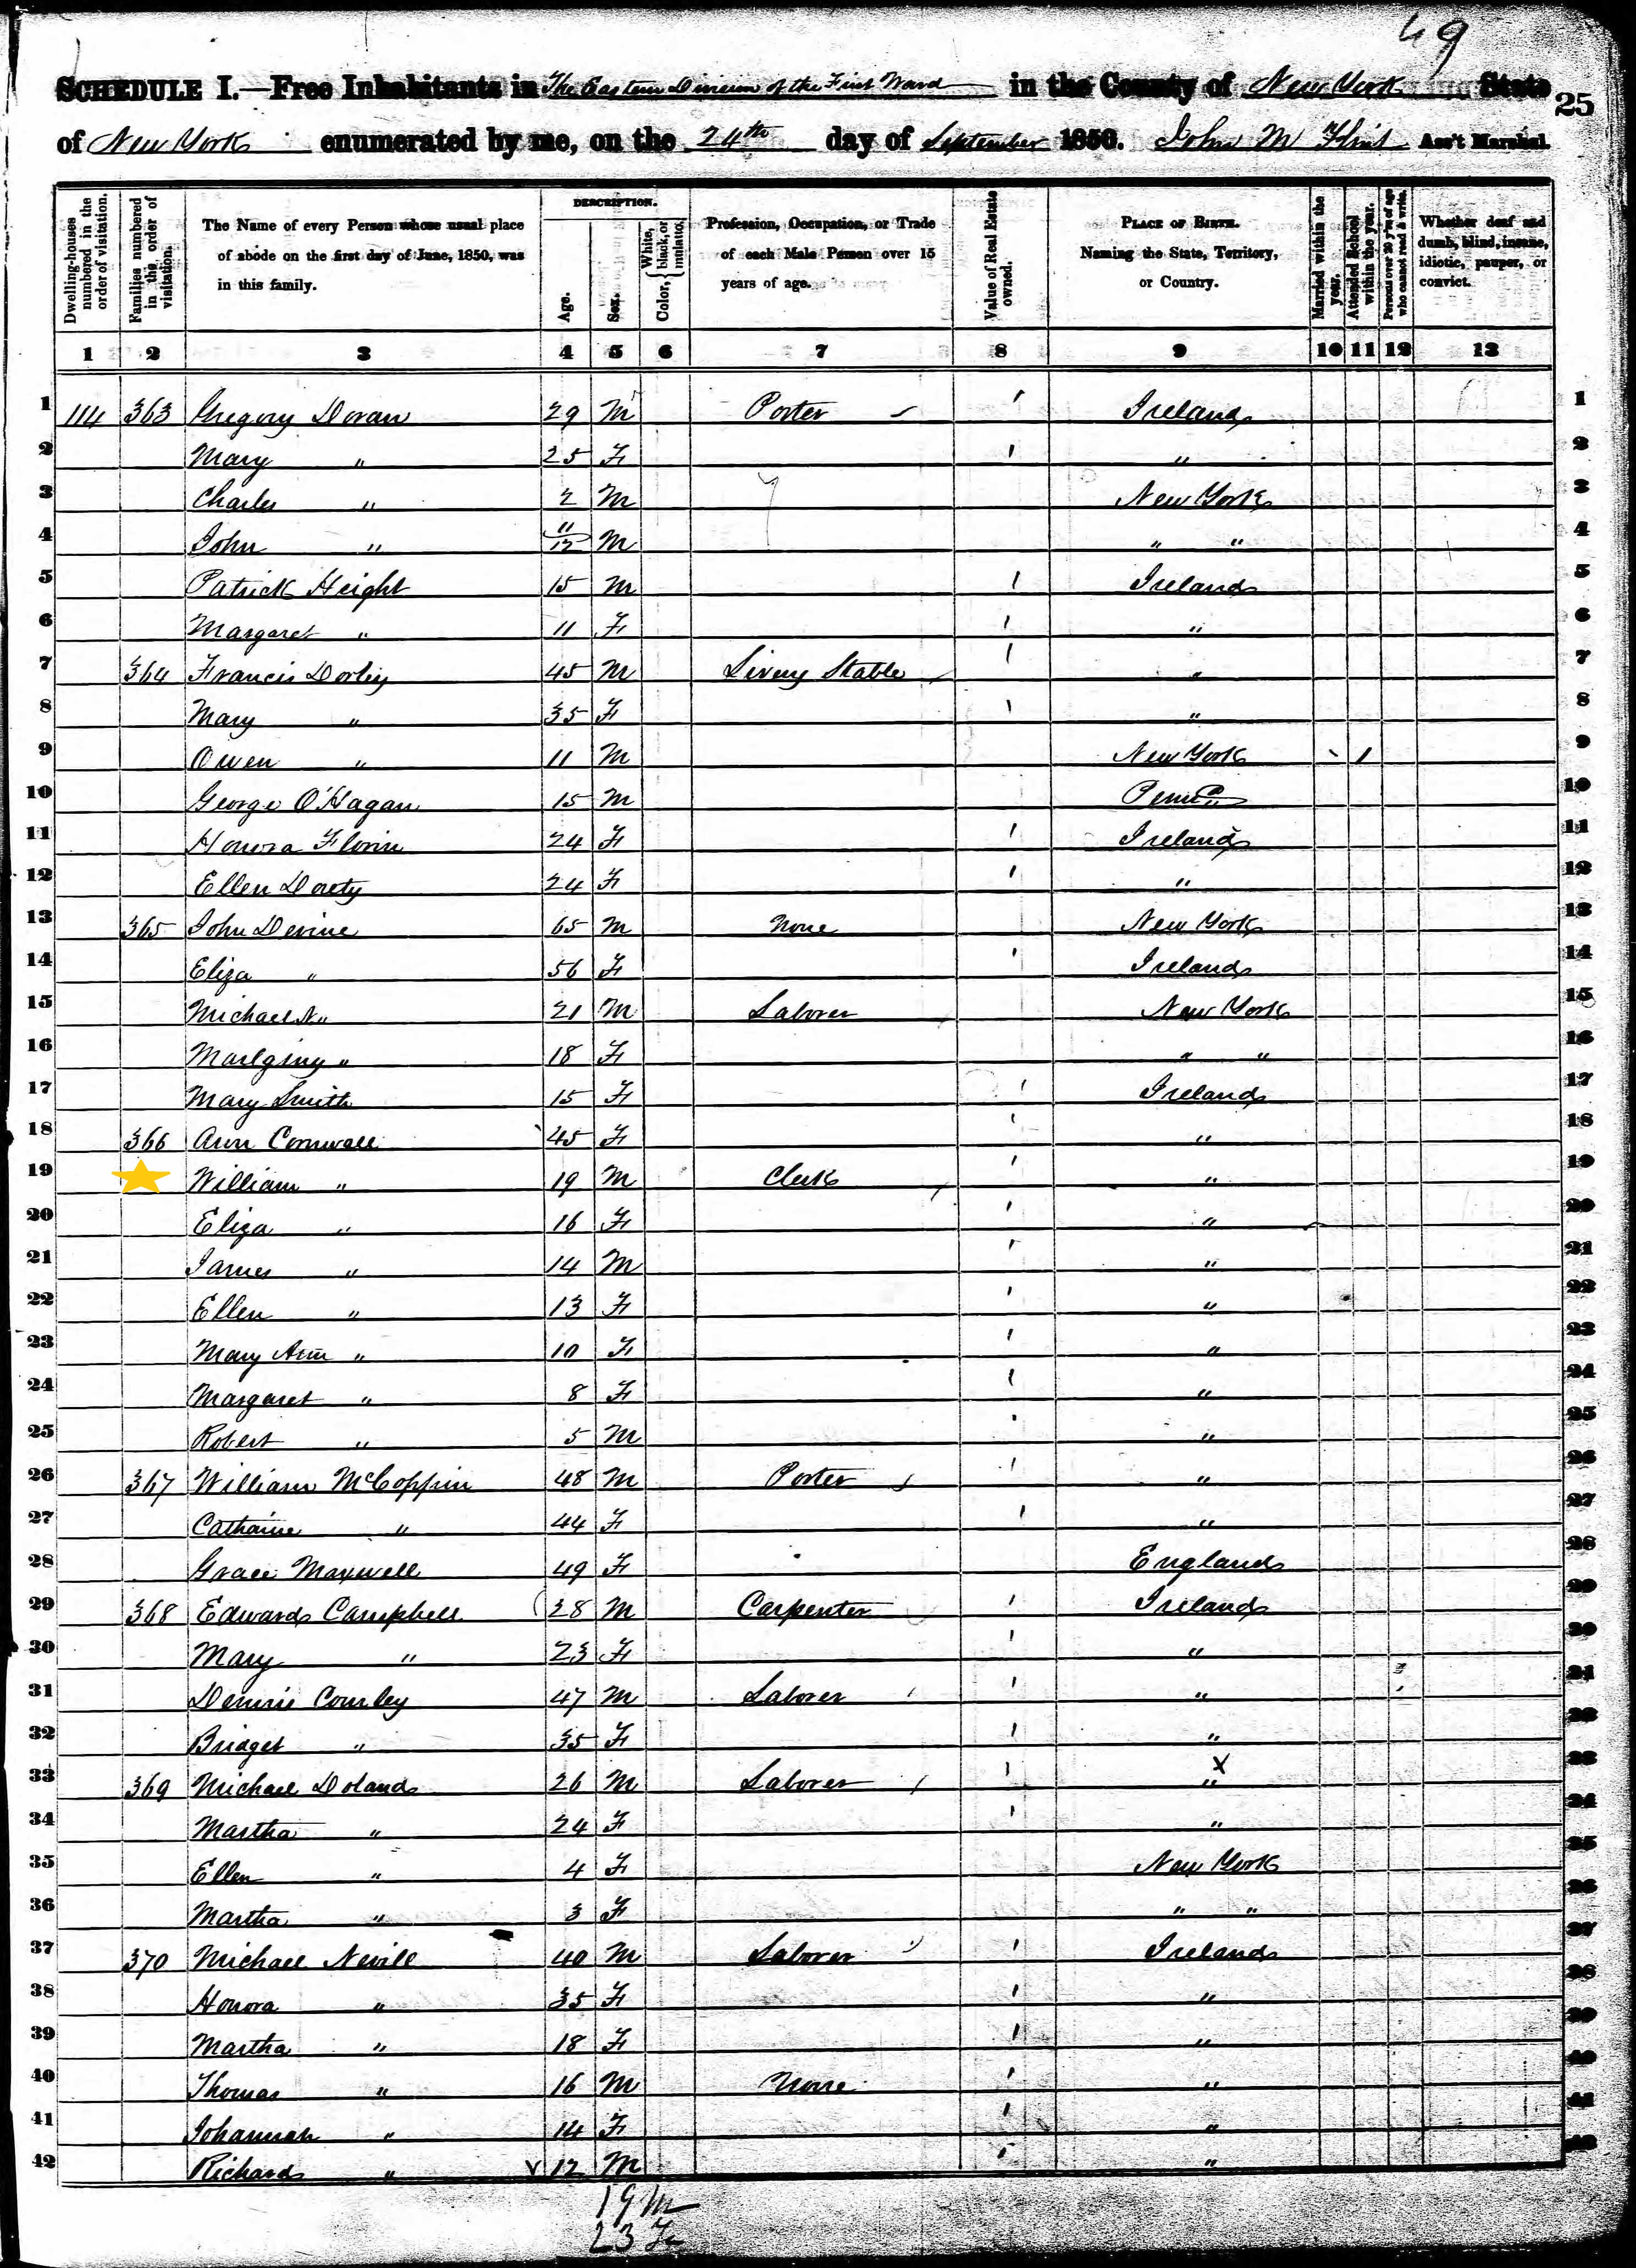 49
SCHEDULE I.—Free Inhabitants in The Eastern Division of the First Ward in the County of New York State 25
of New York enumerated by me, on the 24th day of September 1850. John M Flint Ass't Marshal.
Dwelling-houses numbered in the order of visitation.
Families numbered in the order of visitation.
The Name of every Person whose usual place of abode on the first day of June, 1850, was in this family.
DESCRIPTION.
Age.
Sex.
Color, { White, black, or mulatto.
Profession, Occupation, or Trade of each Male Person over 15 years of age.
Value of Real Estate owned.
PLACE OF BIRTH. Naming the State, Territory, or Country.
Married within the year.
Attended School within the year.
Persons over 20 y'rs of age who cannot read & write.
Whether deaf and dumb, blind, insane, idiotic, pauper, or convict.
1 2 3 4 5 6 7 8 9 10 11 12 13
1 114 363 Gregory Doran 29 M Porter Ireland 1
2 Mary " 25 F " 2
3 Charles " 2 M New York 3
4 John " 11/12 M " " 4
5 Patrick Height 15 M Ireland 5
6 Margaret " 11 F " 6
7 364 Francis 45 M Livery Stable " 7
8 Mary " 35 F " 8
9 Owen " 11 M New York 1 9
10 George O'Hagan 15 M Penn 10
11 Honora 24 F Ireland 11
12 Ellen 24 F " 12
13 365 John Devine 65 M None New York 13
14 Eliza " 56 F Ireland 14
15 Michael N " 21 M Laborer New York 15
16 " 18 F " " 16
17 Mary Smith 15 F Ireland 17
18 366 Ann Cornwall 45 F " 18
19 William " 19 M Clerk " 19
20 Eliza " 16 F " 20
21 James " 14 M " 21
22 Ellen " 13 F " 22
23 Mary Ann " 10 F " 23
24 Margaret " 8 F " 24
25 Robert " 5 M " 25
26 367 William McCoppin 48 M Porter " 26
27 Catharine " 44 F " 27
28 Grace Maxwell 49 F England 28
29 368 Edward Campbell 28 M Carpenter Ireland 29
30 Mary " 23 F " 30
31 Dennis Courley 47 M Laborer "
32 Bridget " 35 F "
33 369 Michael Doland 26 M Laborer X "
34 Martha " 24 F "
35 Ellen " 4 F New York
36 Martha " 3 F " "
37 370 Michael Nevill 40 M Laborer Ireland
38 Honora " 35 F "
39 Martha " 18 F "
40 Thomas " 16 M None "
41 Johannah " 14 F "
42 Richard " 12 M "
19 M
23 F